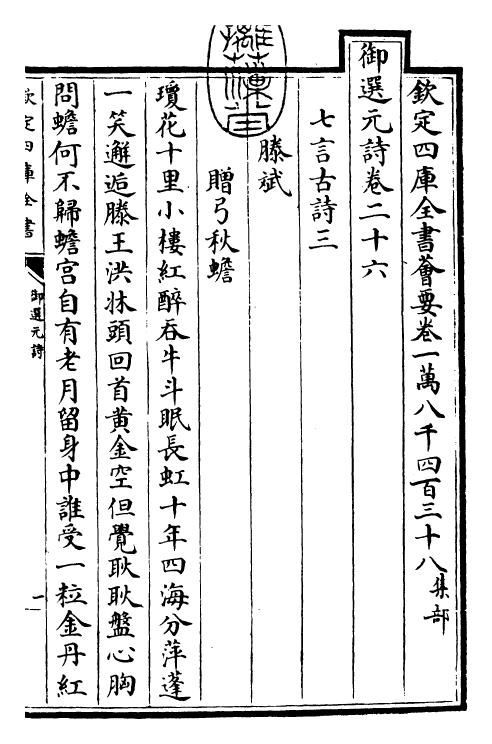 欽定四庫全書薈要卷一萬八千四百三十八集部
御選元詩卷二十六
七言古詩三
滕斌
贈弓秋蟾
瓊花十里小樓紅醉吞牛斗眠長虹十年四海分萍蓬
一笑邂逅滕王洪牀頭回首黃金空但覺耿耿盤心胸
問蟾何不歸蟾宮自有老月留身中誰受一粒金丹紅
欽定四庫全書
御選元詩
一